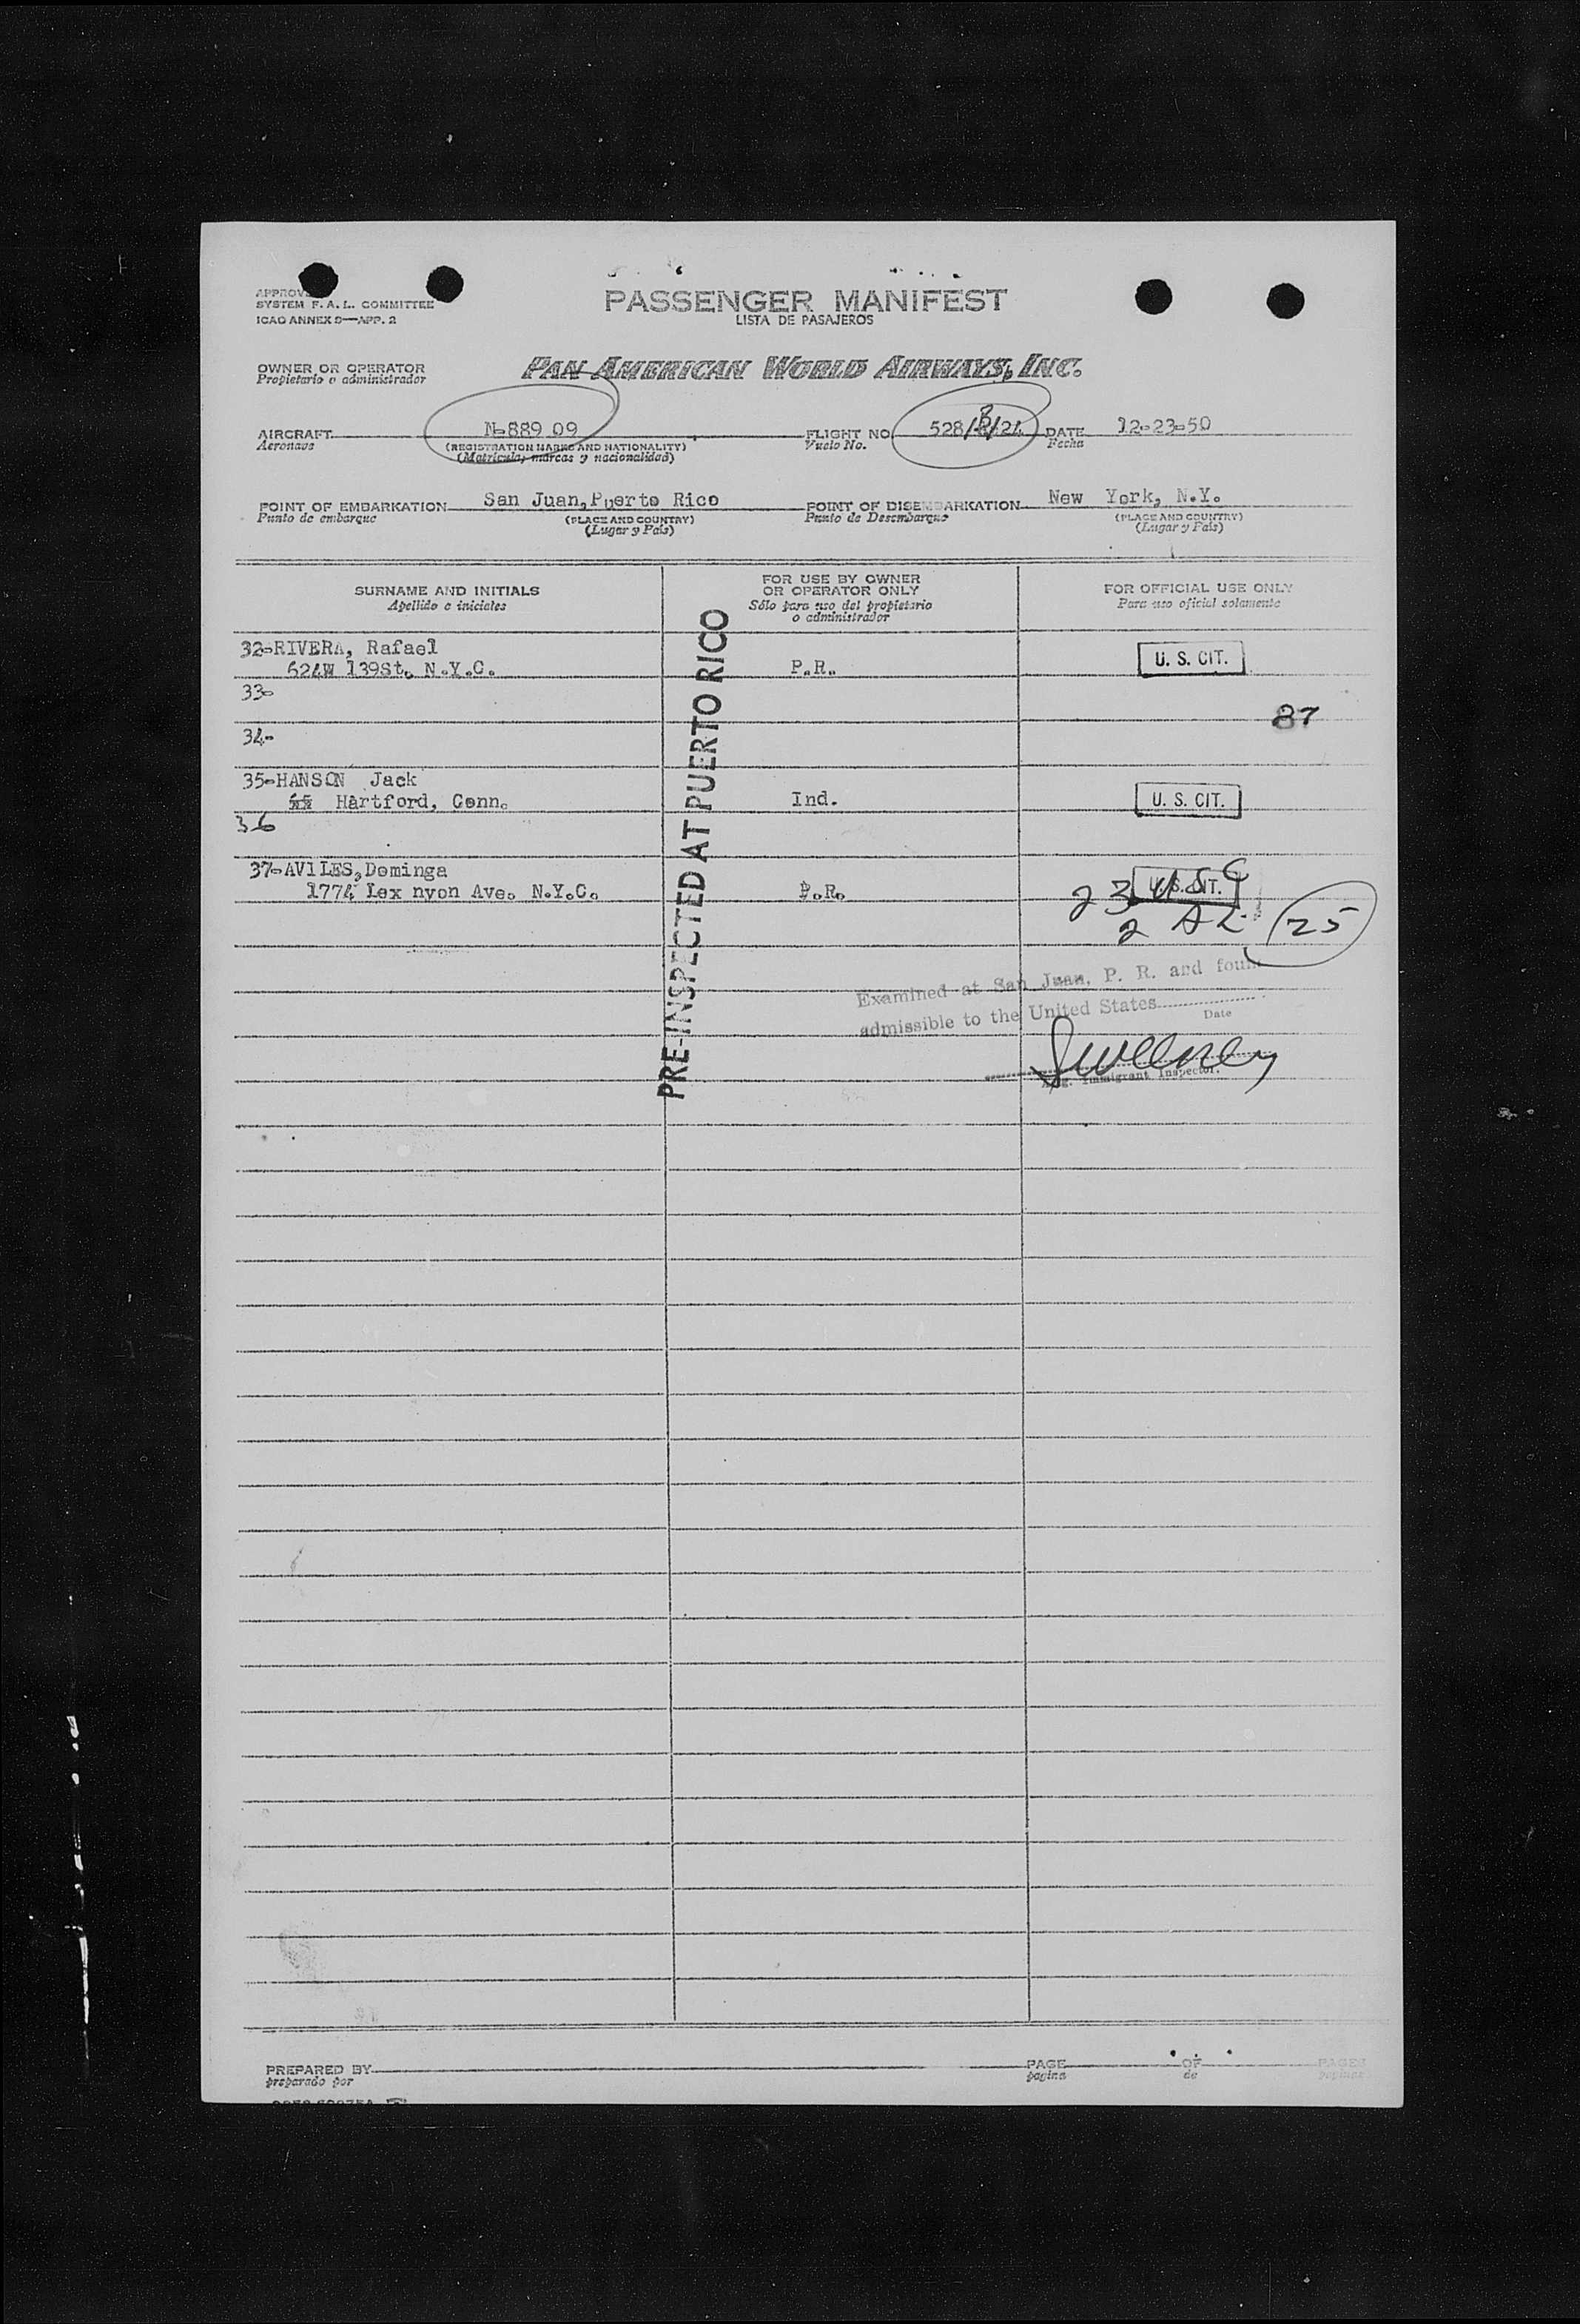 APPROVE
SYSTEM F. A. L. COMMITTEE
ICAO ANNEX 9—APP. 2
PASSENGER MANIFEST
LISTA DE PASAJEROS
OWNER OR OPERATOR
Propietario o administrador
PAN AMERICAN WORLD AIRWAYS, INC.
AIRCRAFT N-889 09 FLIGHT NO. 528/B/24 DATE 12-23-50
Aeronave (REGISTRATION MARKS AND NATIONALITY) Vuelo No. Fecha
(Matrícula, marcas y nacionalidad)
POINT OF EMBARKATION San Juan, Puerto Rico POINT OF DISEMBARKATION New York, N.Y.
Punto de embarque (PLACE AND COUNTRY) Punto de Desembarque (PLACE AND COUNTRY)
(Lugar y País) (Lugar y País)
SURNAME AND INITIALS
Apellido e iniciales
FOR USE BY OWNER
OR OPERATOR ONLY
Sólo para uso del propietario
o administrador
FOR OFFICIAL USE ONLY
Para uso oficial solamente
PRE-INSPECTED AT PUERTO RICO
32-RIVERA, Rafael
624W 139St. N.Y.C. P.R. U. S. CIT.
33-
87
34-
35-HANSON Jack
Hartford, Conn. Ind. U. S. CIT.
36
37-AVILES, Dominga
1774 Lex nyon Ave. N.Y.C. P.R. U. S. CIT.
23 USC
2 AL 25
Examined at San Juan, P. R. and found
admissible to the United States
Date
Sweeney
Immigrant Inspector.
PREPARED BY PAGE OF PAGES
preparado por pagina de paginas